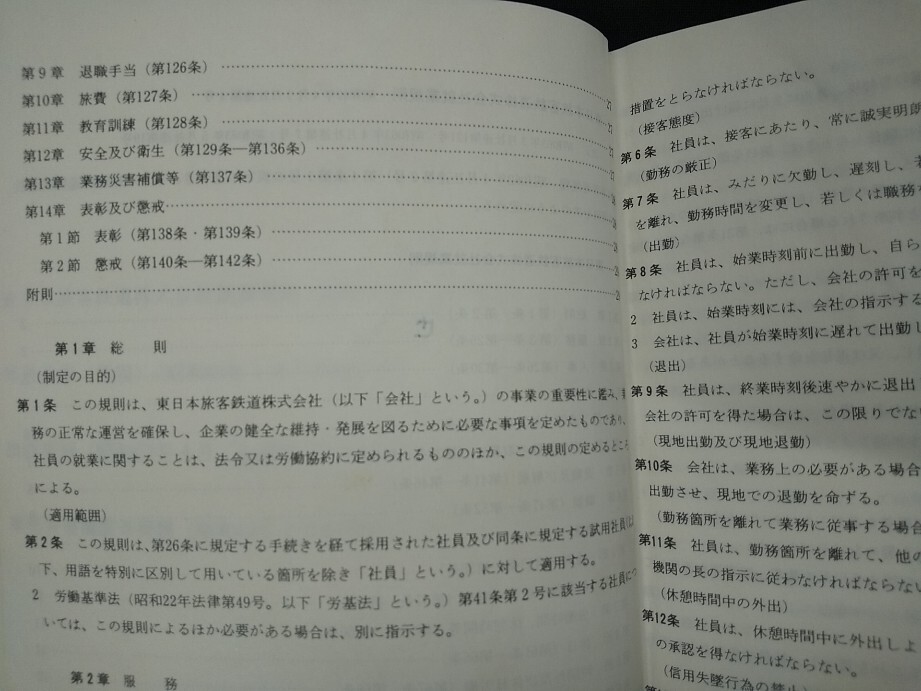 第9章 退職手当（第126条）
第10章 旅費（第127条）
第11章 教育訓練（第128条）
第12章 安全及び衛生（第129条―第136条）
第13章 業務災害補償等（第137条）
第14章 表彰及び懲戒
第1節 表彰（第138条・第139条）
第2節 懲戒（第140条―第142条）
附則
第1章 総 則
（制定の目的）
第1条 この規則は、東日本旅客鉄道株式会社（以下「会社」という。）の事業の重要性に鑑み、
務の正常な運営を確保し、企業の健全な維持・発展を図るために必要な事項を定めたものであり、
社員の就業に関することは、法令又は労働協約に定められるもののほか、この規則の定めるところ
による。
（適用範囲）
第2条 この規則は、第26条に規定する手続きを経て採用された社員及び同条に規定する試用社員（以
下、用語を特別に区別して用いている箇所を除き「社員」という。）に対して適用する。
2 労働基準法（昭和22年法律第49号。以下「労基法」という。）第41条第2号に該当する社員につ
いては、この規則によるほか必要がある場合は、別に指示する。
第2章 服 務
措置をとらなければならない。
（接客態度）
第6条 社員は、接客にあたり、常に誠実明朗
（勤務の厳正）
第7条 社員は、みだりに欠勤し、遅刻し、若
を離れ、勤務時間を変更し、若しくは職務
（出勤）
第8条 社員は、始業時刻前に出勤し、自ら
なければならない。ただし、会社の許可を
2 社員は、始業時刻には、会社の指示する
3 会社は、社員が始業時刻に遅れて出勤し
（退出）
第9条 社員は、終業時刻後速やかに退出
会社の許可を得た場合は、この限りでな
（現地出勤及び現地退勤）
第10条 会社は、業務上の必要がある場合
出勤させ、現地での退勤を命ずる。
（勤務箇所を離れて業務に従事する場合
第11条 社員は、勤務箇所を離れて、他の
機関の長の指示に従わなければならない
（休憩時間中の外出）
第12条 社員は、休憩時間中に外出しよ
の承認を得なければならない。
（信用失墜行為の禁止）